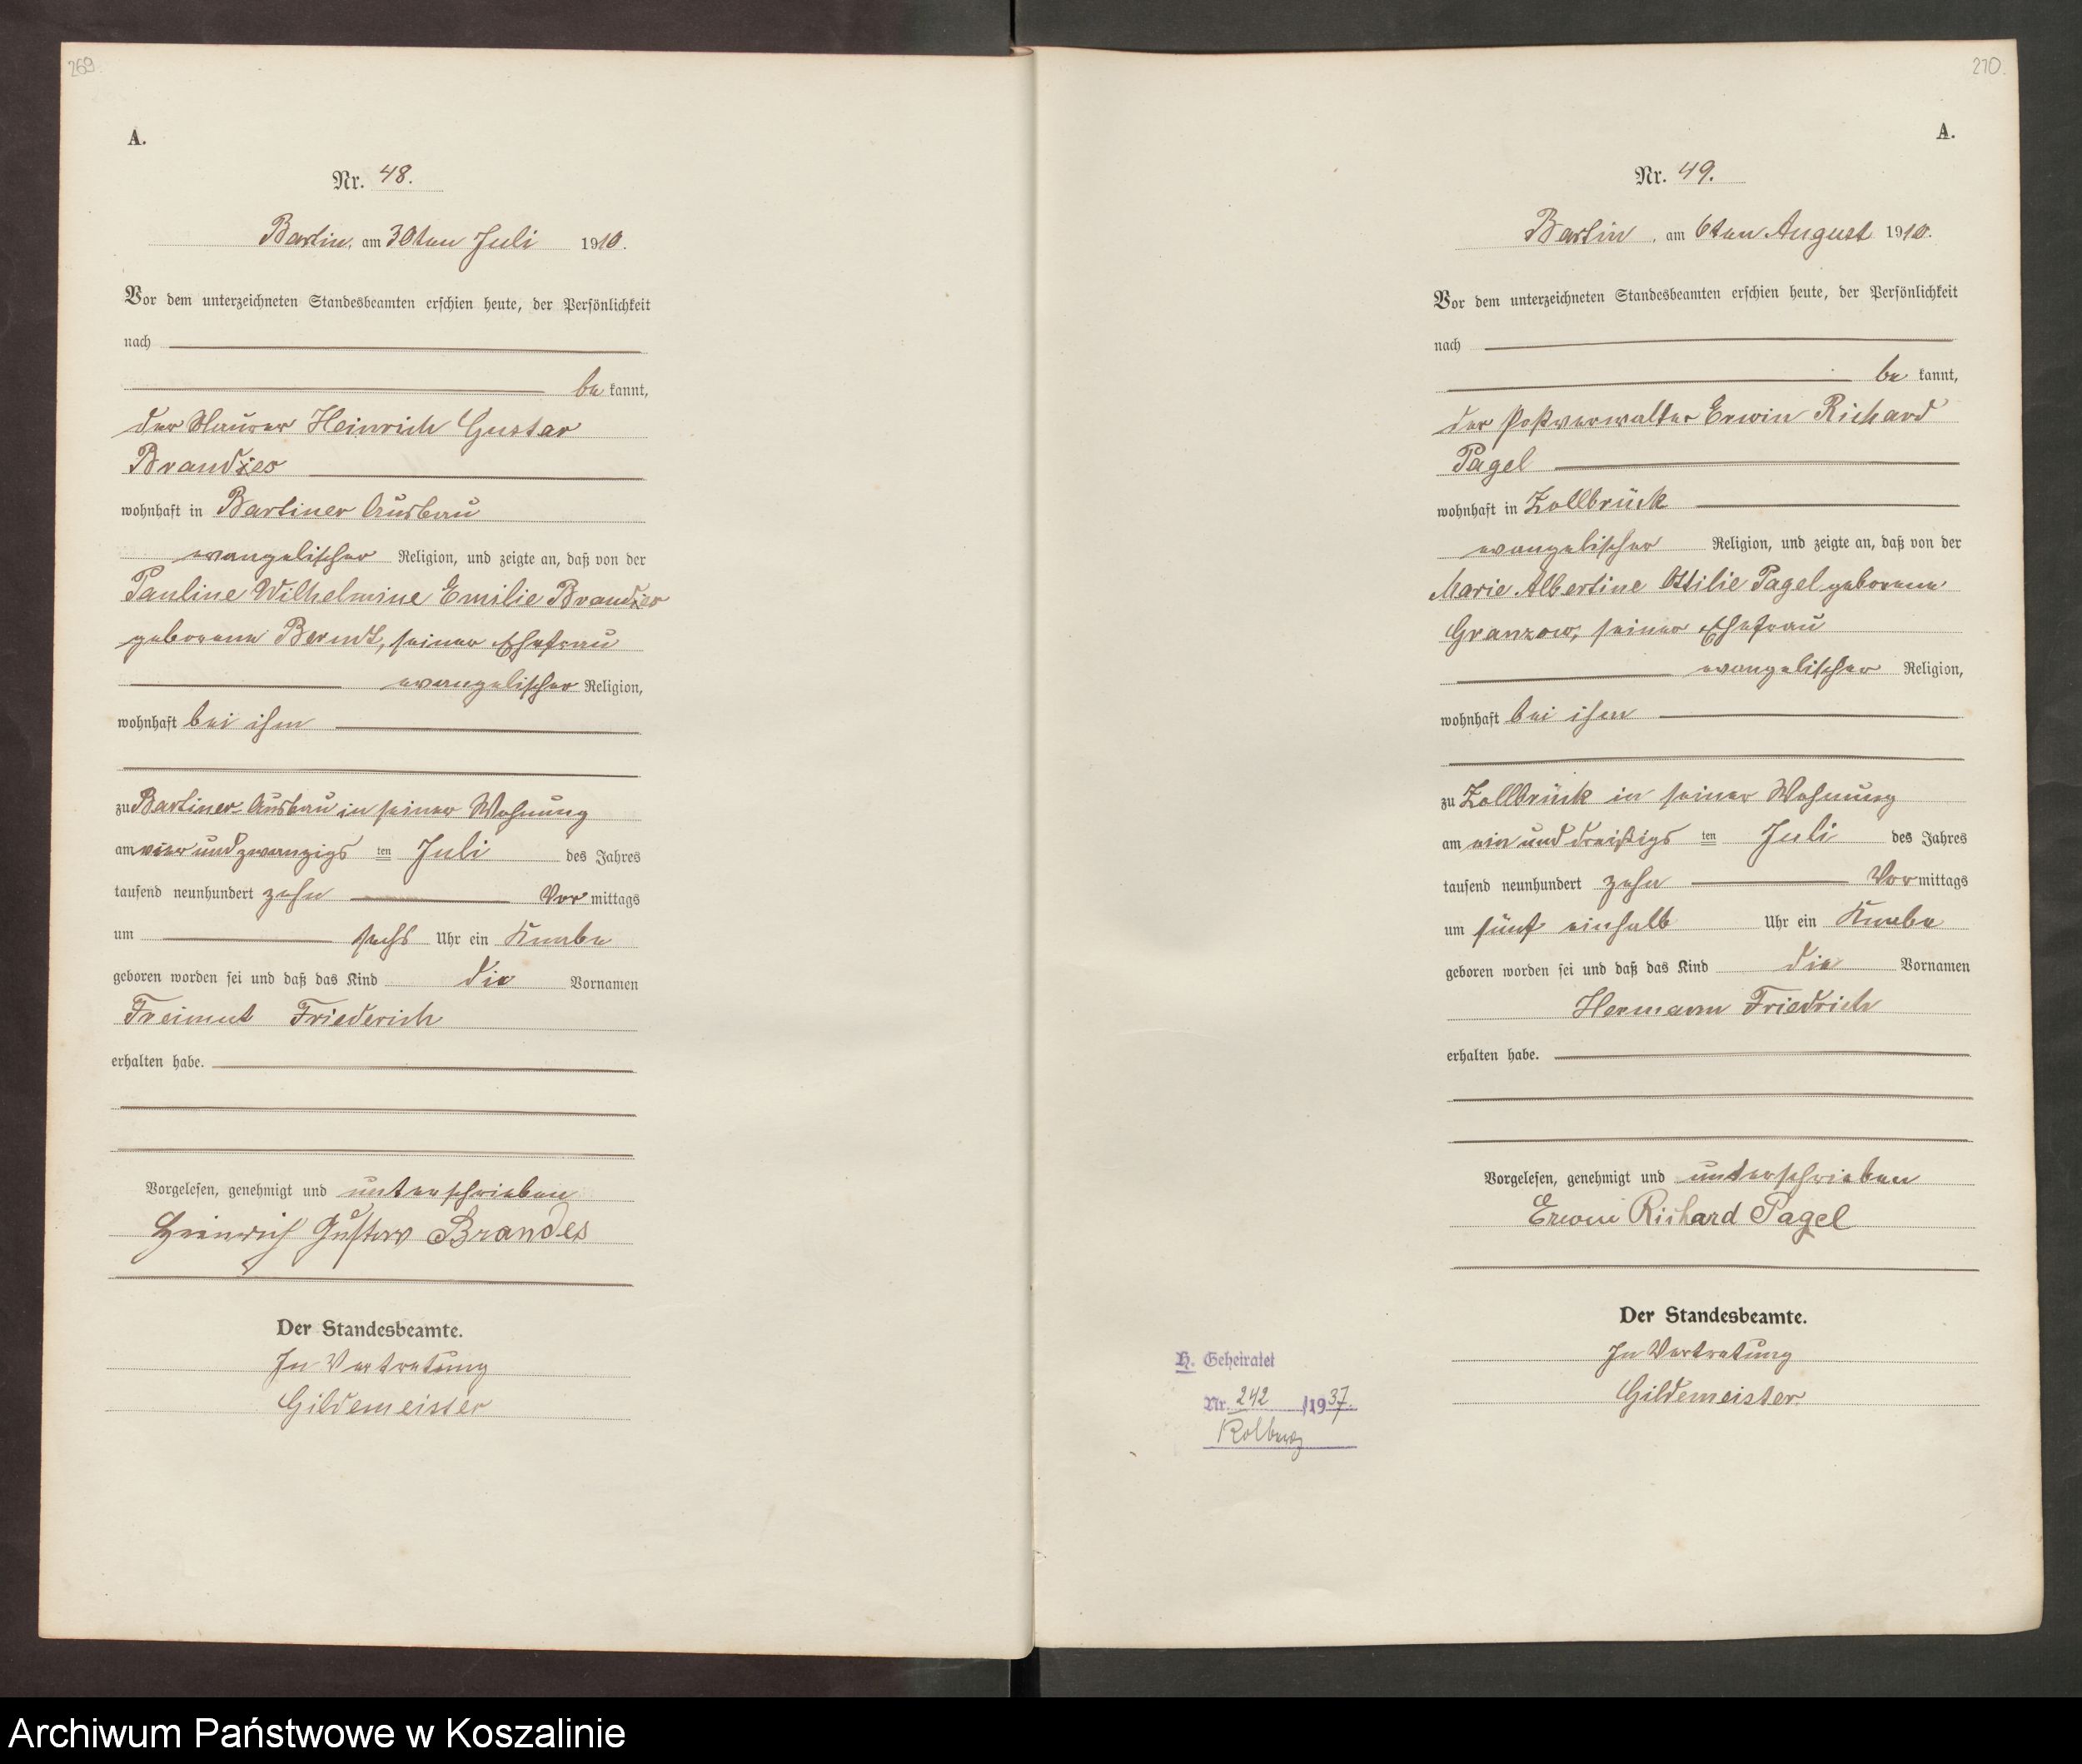 269.
A.
Nr. 48.
Bartin, am 30ten Juli 1910.
Vor dem unterzeichneten Standesbeamten erschien heute, der Persönlichkeit
nach
be kannt,
der Maurer Heinrich Gustav
Brandes
wohnhaft in Bartiner Ausbau
evangelischer Religion, und zeigte an, daß von der
Pauline Wilhelmine Emilie Brandes
geborene Berndt, seiner Ehefrau
evangelischer Religion,
wohnhaft bei ihm
zu Bartiner Ausbau in seiner Wohnung
am vier und zwanzigs ten Juli des Jahres
tausend neunhundert zehn Vor mittags
um sechs Uhr ein Knabe
geboren worden sei und daß das Kind die Vornamen
Freimut Friederich
erhalten habe.
Vorgelesen, genehmigt und unterschrieben
Heinrich Gustav Brandes
Der Standesbeamte.
In Vertretung
Gildemeister
210.
A.
Nr. 49.
Bartin, am 6ten August 1910.
Vor dem unterzeichneten Standesbeamten erschien heute, der Persönlichkeit
nach
be kannt,
der Postverwalter Erwin Richard
Pagel
wohnhaft in Zollbrück
evangelischer Religion, und zeigte an, daß von der
Marie Albertine Ottilie Pagel geborene
Granzow, seiner Ehefrau
evangelischer Religion,
wohnhaft bei ihm
zu Zollbrück in seiner Wohnung
am ein und dreißigs ten Juli des Jahres
tausend neunhundert zehn Vor mittags
um fünf einhalb Uhr ein Knabe
geboren worden sei und daß das Kind die Vornamen
Hermann Friedrich
erhalten habe.
Vorgelesen, genehmigt und unterschrieben
Erwin Richard Pagel
Der Standesbeamte.
In Vertretung
Gildemeister
H. Geheiratet
Nr. 242 /1937.
Kolberg
Archiwum Państwowe w Koszalinie